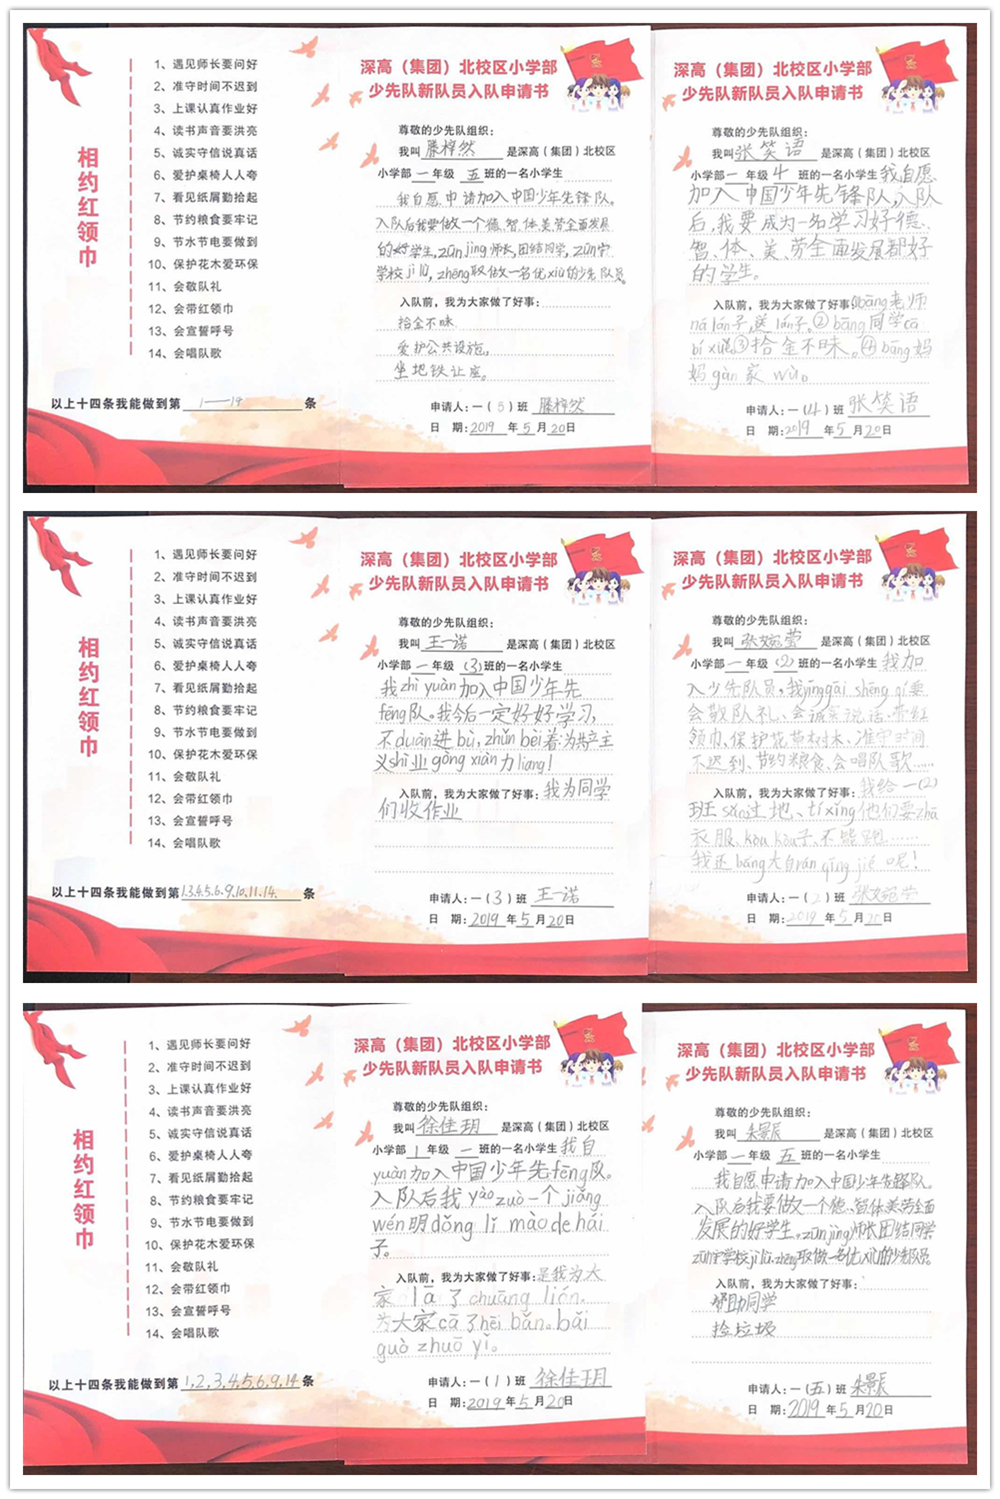 相约红领巾
1、遇见师长要问好
2、准守时间不迟到
3、上课认真作业好
4、读书声音要洪亮
5、诚实守信说真话
6、爱护桌椅人人夸
7、看见纸屑勤拾起
8、节约粮食要牢记
9、节水节电要做到
10、保护花木爱环保
11、会敬队礼
12、会带红领巾
13、会宣誓呼号
14、会唱队歌
以上十四条我能做到第 1——14 条
深高（集团）北校区小学部
少先队新队员入队申请书
尊敬的少先队组织：
我叫 滕梓然 是深高（集团）北校区
小学部 一 年级 五 班的一名小学生
我自愿申请加入中国少年先锋队。
入队后我要做一个德、智、体、美、劳全面发展
的好学生，zūn jìng 师长，团结同学，zūn守
学校 jì lǜ，zhēng取做一名优xiù的少先队员
入队前，我为大家做了好事：
拾金不昧
爱护公共设施。
坐地铁让座。
申请人：一（5）班 滕梓然
日 期：2019 年 5 月 20 日
深高（集团）北校区小学部
少先队新队员入队申请书
尊敬的少先队组织：
我叫 张笑语 是深高（集团）北校区
小学部 一 年级 4 班的一名小学生 我自愿
加入中国少年先锋队，入队
后，我要成为一名学习好德、
智、体、美、劳全面发展都好
的学生。
入队前，我为大家做了好事：①bāng老师
ná lán子，送lán子。②bāng同学cā
③拾金不昧。④bāng妈
妈gàn家wù。
申请人：一（4）班 张笑语
日 期：2019 年 5 月 20 日
相约红领巾
1、遇见师长要问好
2、准守时间不迟到
3、上课认真作业好
4、读书声音要洪亮
5、诚实守信说真话
6、爱护桌椅人人夸
7、看见纸屑勤拾起
8、节约粮食要牢记
9、节水节电要做到
10、保护花木爱环保
11、会敬队礼
12、会带红领巾
13、会宣誓呼号
14、会唱队歌
以上十四条我能做到第 1.3.4.5.6.9.10.11.14. 条
深高（集团）北校区小学部
少先队新队员入队申请书
尊敬的少先队组织：
我叫 王一诺 是深高（集团）北校区
小学部 一 年级（3）班的一名小学生
我zhì yuàn加入中国少年先
fēng队。我今后一定好好学习，
不duàn进bù，zhǔn bèi着：为共产主
义shì业gòng xiàn力liang！
入队前，我为大家做了好事：我为同学
们收作业
申请人：一（3）班 王一诺
日 期：2019 年 5 月 20 日
深高（集团）北校区小学部
少先队新队员入队申请书
尊敬的少先队组织：
我叫 张婉莹 是深高（集团）北校区
小学部 一 年级（2）班的一名小学生 我加
入少先队员，我yīnggāi
会敬队礼、会诚实说话、带红
领巾、保护花草树木、准守时间
不迟到、节约粮食、会唱队歌……
入队前，我为大家做了好事：我给一（2）
班sǎo过地、tí xǐng他们要zhā
衣服、kòu kòu子、不能跑……
我还bāng大自rán qīng jié呢！
申请人：一（2）班 张婉莹
日 期：2019 年 5 月 20 日
相约红领巾
1、遇见师长要问好
2、准守时间不迟到
3、上课认真作业好
4、读书声音要洪亮
5、诚实守信说真话
6、爱护桌椅人人夸
7、看见纸屑勤拾起
8、节约粮食要牢记
9、节水节电要做到
10、保护花木爱环保
11、会敬队礼
12、会带红领巾
13、会宣誓呼号
14、会唱队歌
以上十四条我能做到第 1,2,3,4,5,6,9,14 条
深高（集团）北校区小学部
少先队新队员入队申请书
尊敬的少先队组织：
我叫 徐佳玥 是深高（集团）北校区
小学部 1 年级 一 班的一名小学生 我自
yuàn加入中国少年先fēng队。
入队后我yào zuò一个jiǎng
wén明dǒng lǐ mào de hái
子。
入队前，我为大家做了好事：是我为大
家lā了chuāng lián.
为大家cā了hēi bǎn。bǎi
guò zhuō yǐ。
申请人：一（1）班 徐佳玥
日 期：2019 年 5 月 20 日
深高（集团）北校区小学部
少先队新队员入队申请书
尊敬的少先队组织：
我叫 朱景辰 是深高（集团）北校区
小学部 一 年级 五 班的一名小学生
我自愿申请加入中国少年先锋队。
入队后我要做一个德、智体美劳全面
发展的好学生。zūn jìng师长团结同学
zūn守学校jì lǜ.zhēng取做一名优xiù的少先队员。
入队前，我为大家做了好事：
帮助同学
捡垃圾
申请人：一（五）班 朱景辰
日 期：2019 年 5 月 20 日